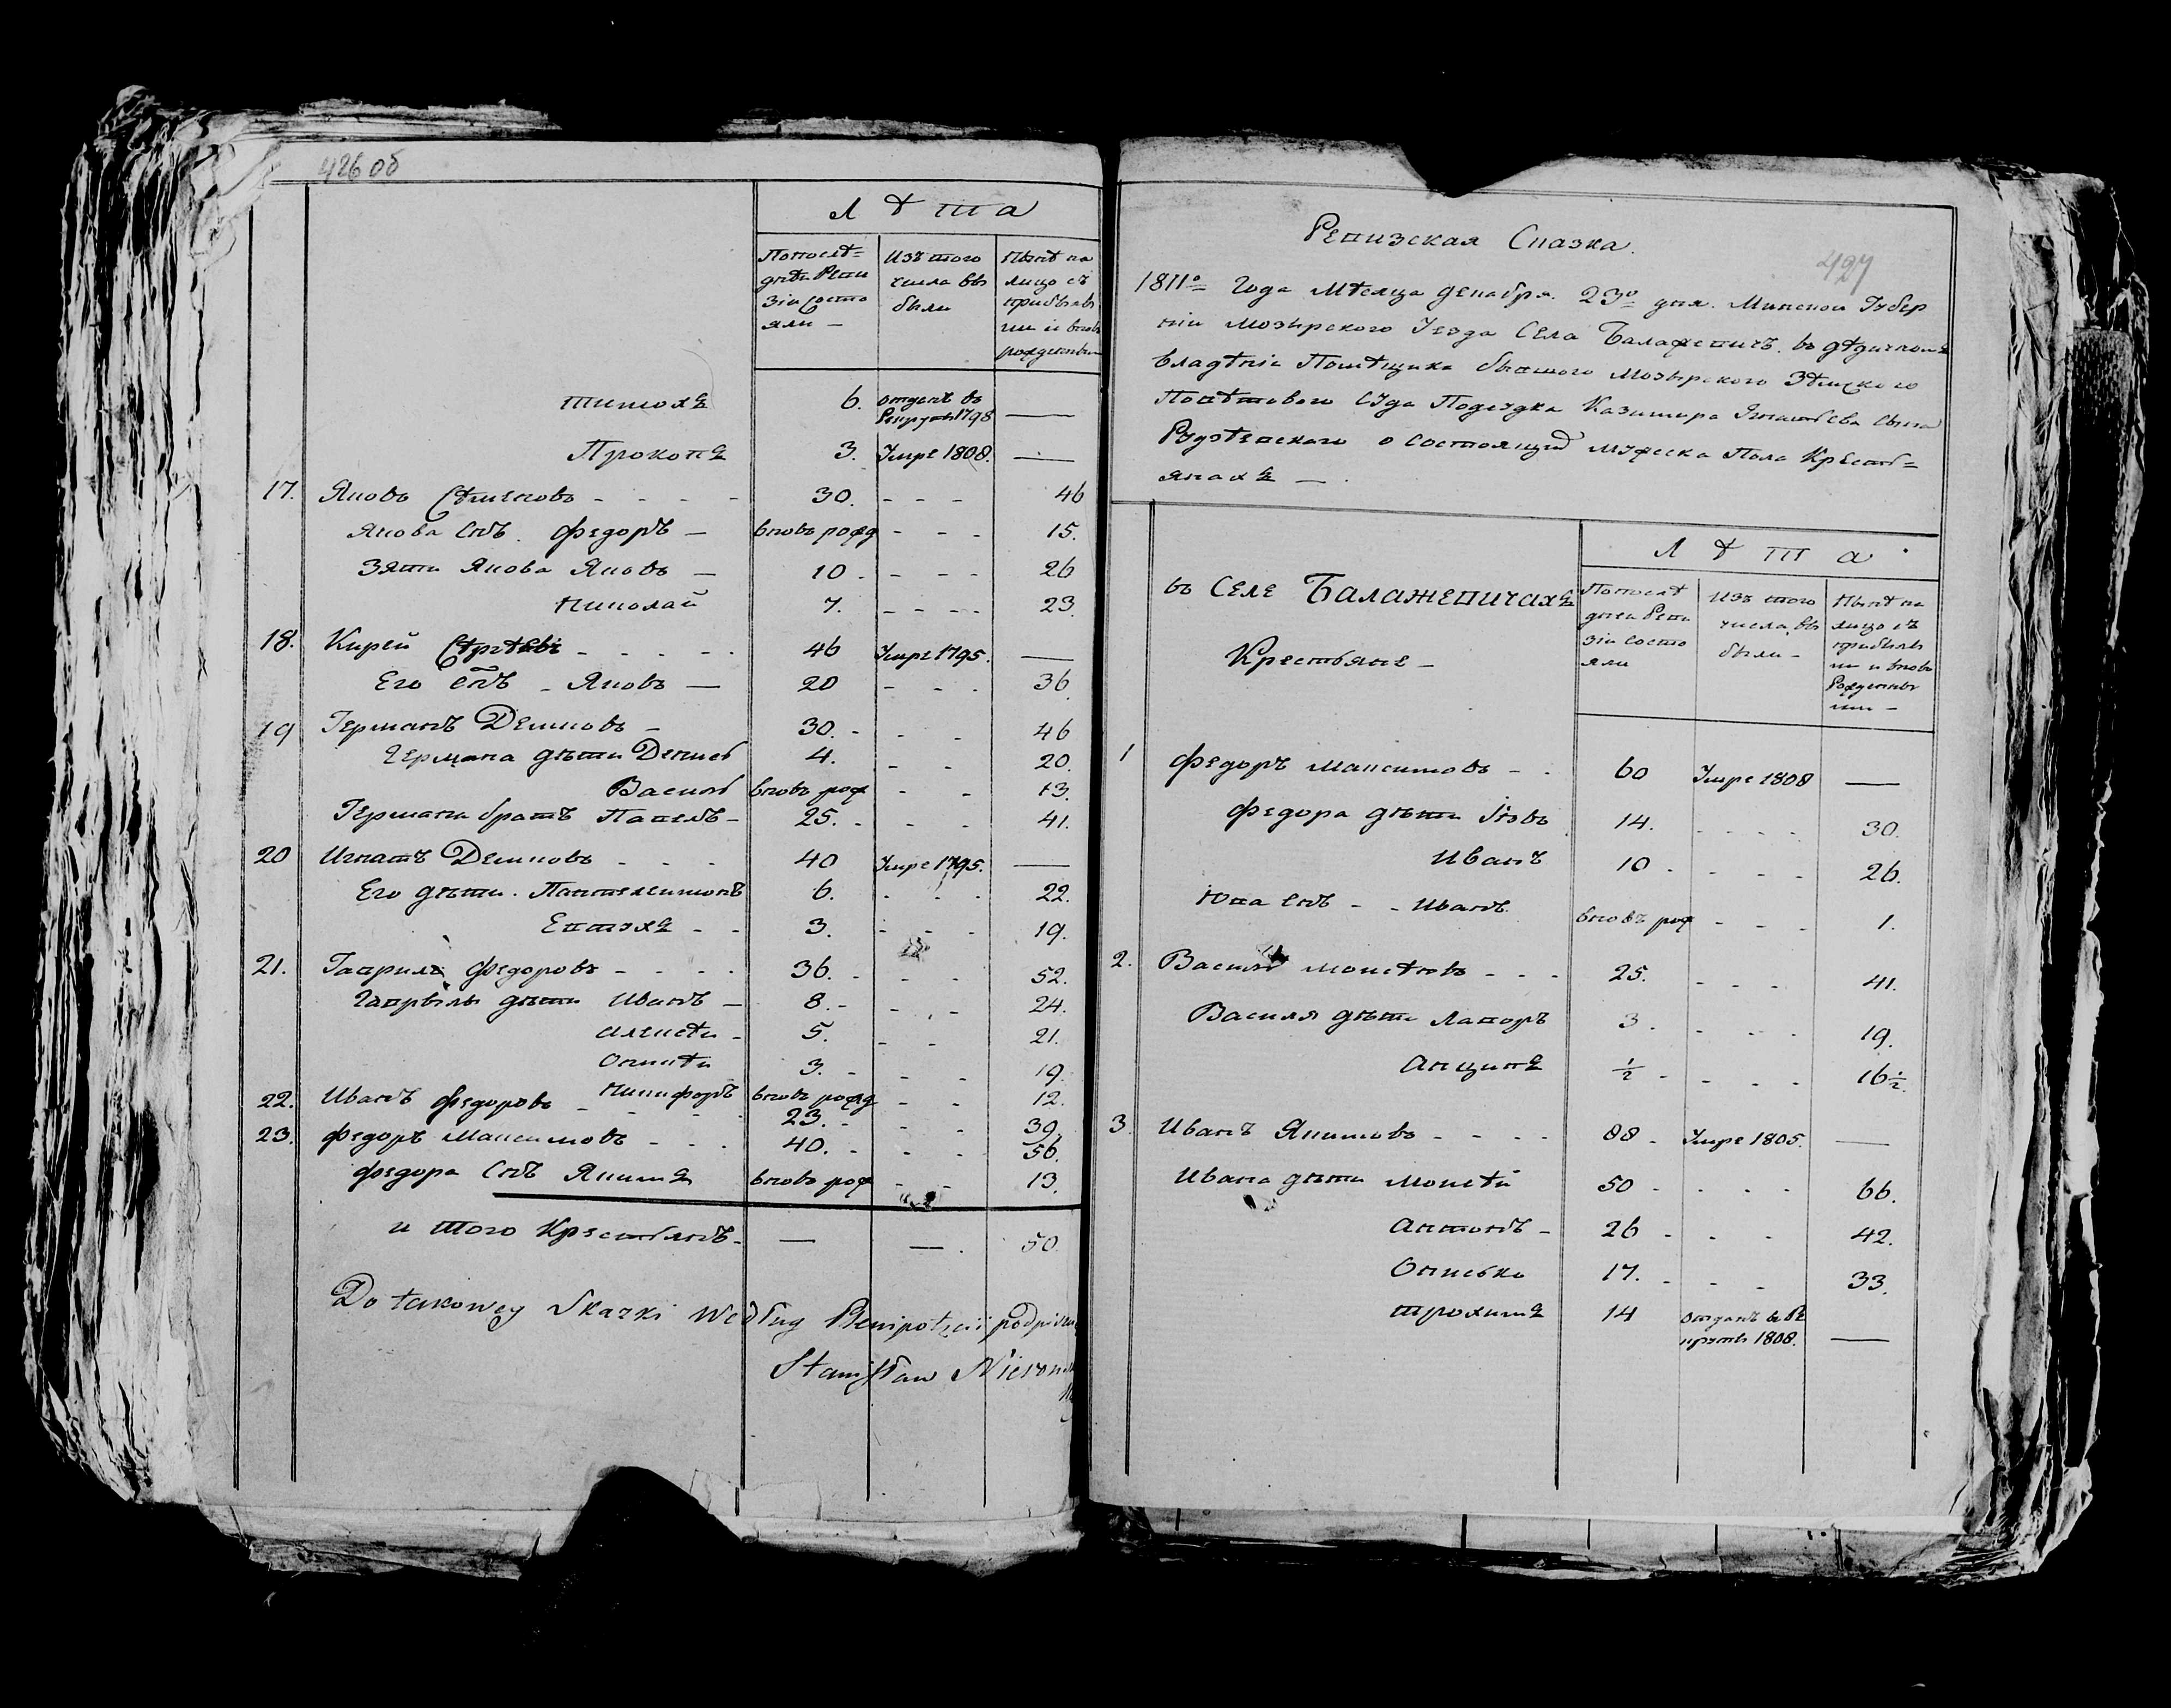 426 об
Лѣта
По послѣ=
дней Реви
зіи состо
яли —
Изъ того
числа вы
были
Нынѣ на
лицо съ
прибылы
ми и вновь
рожденными
Тимохъ 6. отданъ въ Рекруты 1798 —
Прокопъ 3. Умре 1808. —
17. Яковъ - - - - 30. - - - 46
Якова сынъ Федоръ — вновь рожд - - - 15.
Зяти Якова Яковъ — 10 - - - - 26
Николай 7. - - - - 23
18. Кирей - - - - - 46 Умре 1795. —
Его сынъ - Яковъ — 20 - - - 36.
19 Германъ Демковъ - 30. - - - 46
Германа дѣти Денисъ 4. - - 20.
Василь вновь рож - - 13.
Германа братъ Павелъ - 25. - - - 41.
20 Игнатъ Демковъ - - - 40 Умре 1795. —
Его дѣти. Пантелеимонъ 6. - - - 22.
Евтухъ - - 3. - - - 19.
21. Гаврило Федоровъ - - - - 36. - - - 52.
Гаврылы дѣти Иванъ — 8. - - - - 24.
Алексѣй - 5. - - 21.
Оникѣй 3. - - - 19.
Никифоръ вновь рожд - - 12.
22. Иванъ Федоровъ - - - - 23. - - - 39.
23. Федоръ Максимовъ - - - 40. - - - 56.
Федора сынъ Якимъ вновь рож - - 13.
и того Крестьянъ - — — . 50.
Do takowey Skazki według
Stanisław
427
Ревизская Сказка.
1811го Года Мѣсяца Декабря 23го дня. Минской Губер
ніи Мозырского Уезда Села Балажевичъ. въ дѣдичномъ
владѣніи Помѣщика бывшого Мозырского Зѣмского
Повѣтового Суда Подсудка Казимира Игнатьева сына
о состоящихъ мужеска пола Кресть=
янахъ — .
въ Селе Балажевичахъ
Крестьяне —
Лѣта
По послѣ
дней Реви
зіи состо
яли
Изъ того
числа вы
были -
Нынѣ на
лицо съ
прибылы
ми и вновь
Рожденны
ми —
1 Федоръ Максимовъ - - 60 Умре 1808 —
Федора дѣти Іовъ 14. - - - - 30.
Иванъ 10 - - - - - 26.
Юва сынъ - - Иванъ. вновь рож - - - 1.
2. Василь Мокѣевъ - - - 25. - - - 41.
Василя дѣти Лаворъ 3. - - - 19.
Анципъ ½ - - - - 16½
3. Иванъ Якимовъ - - - - 88 - Умре 1805. —
Ивана дѣти Мокѣй 50 - - - - 66.
Антонъ - 26 - - - 42.
Онисько 17. - - - 33.
Трохимъ 14 отданъ въ Ре круты 1808. —